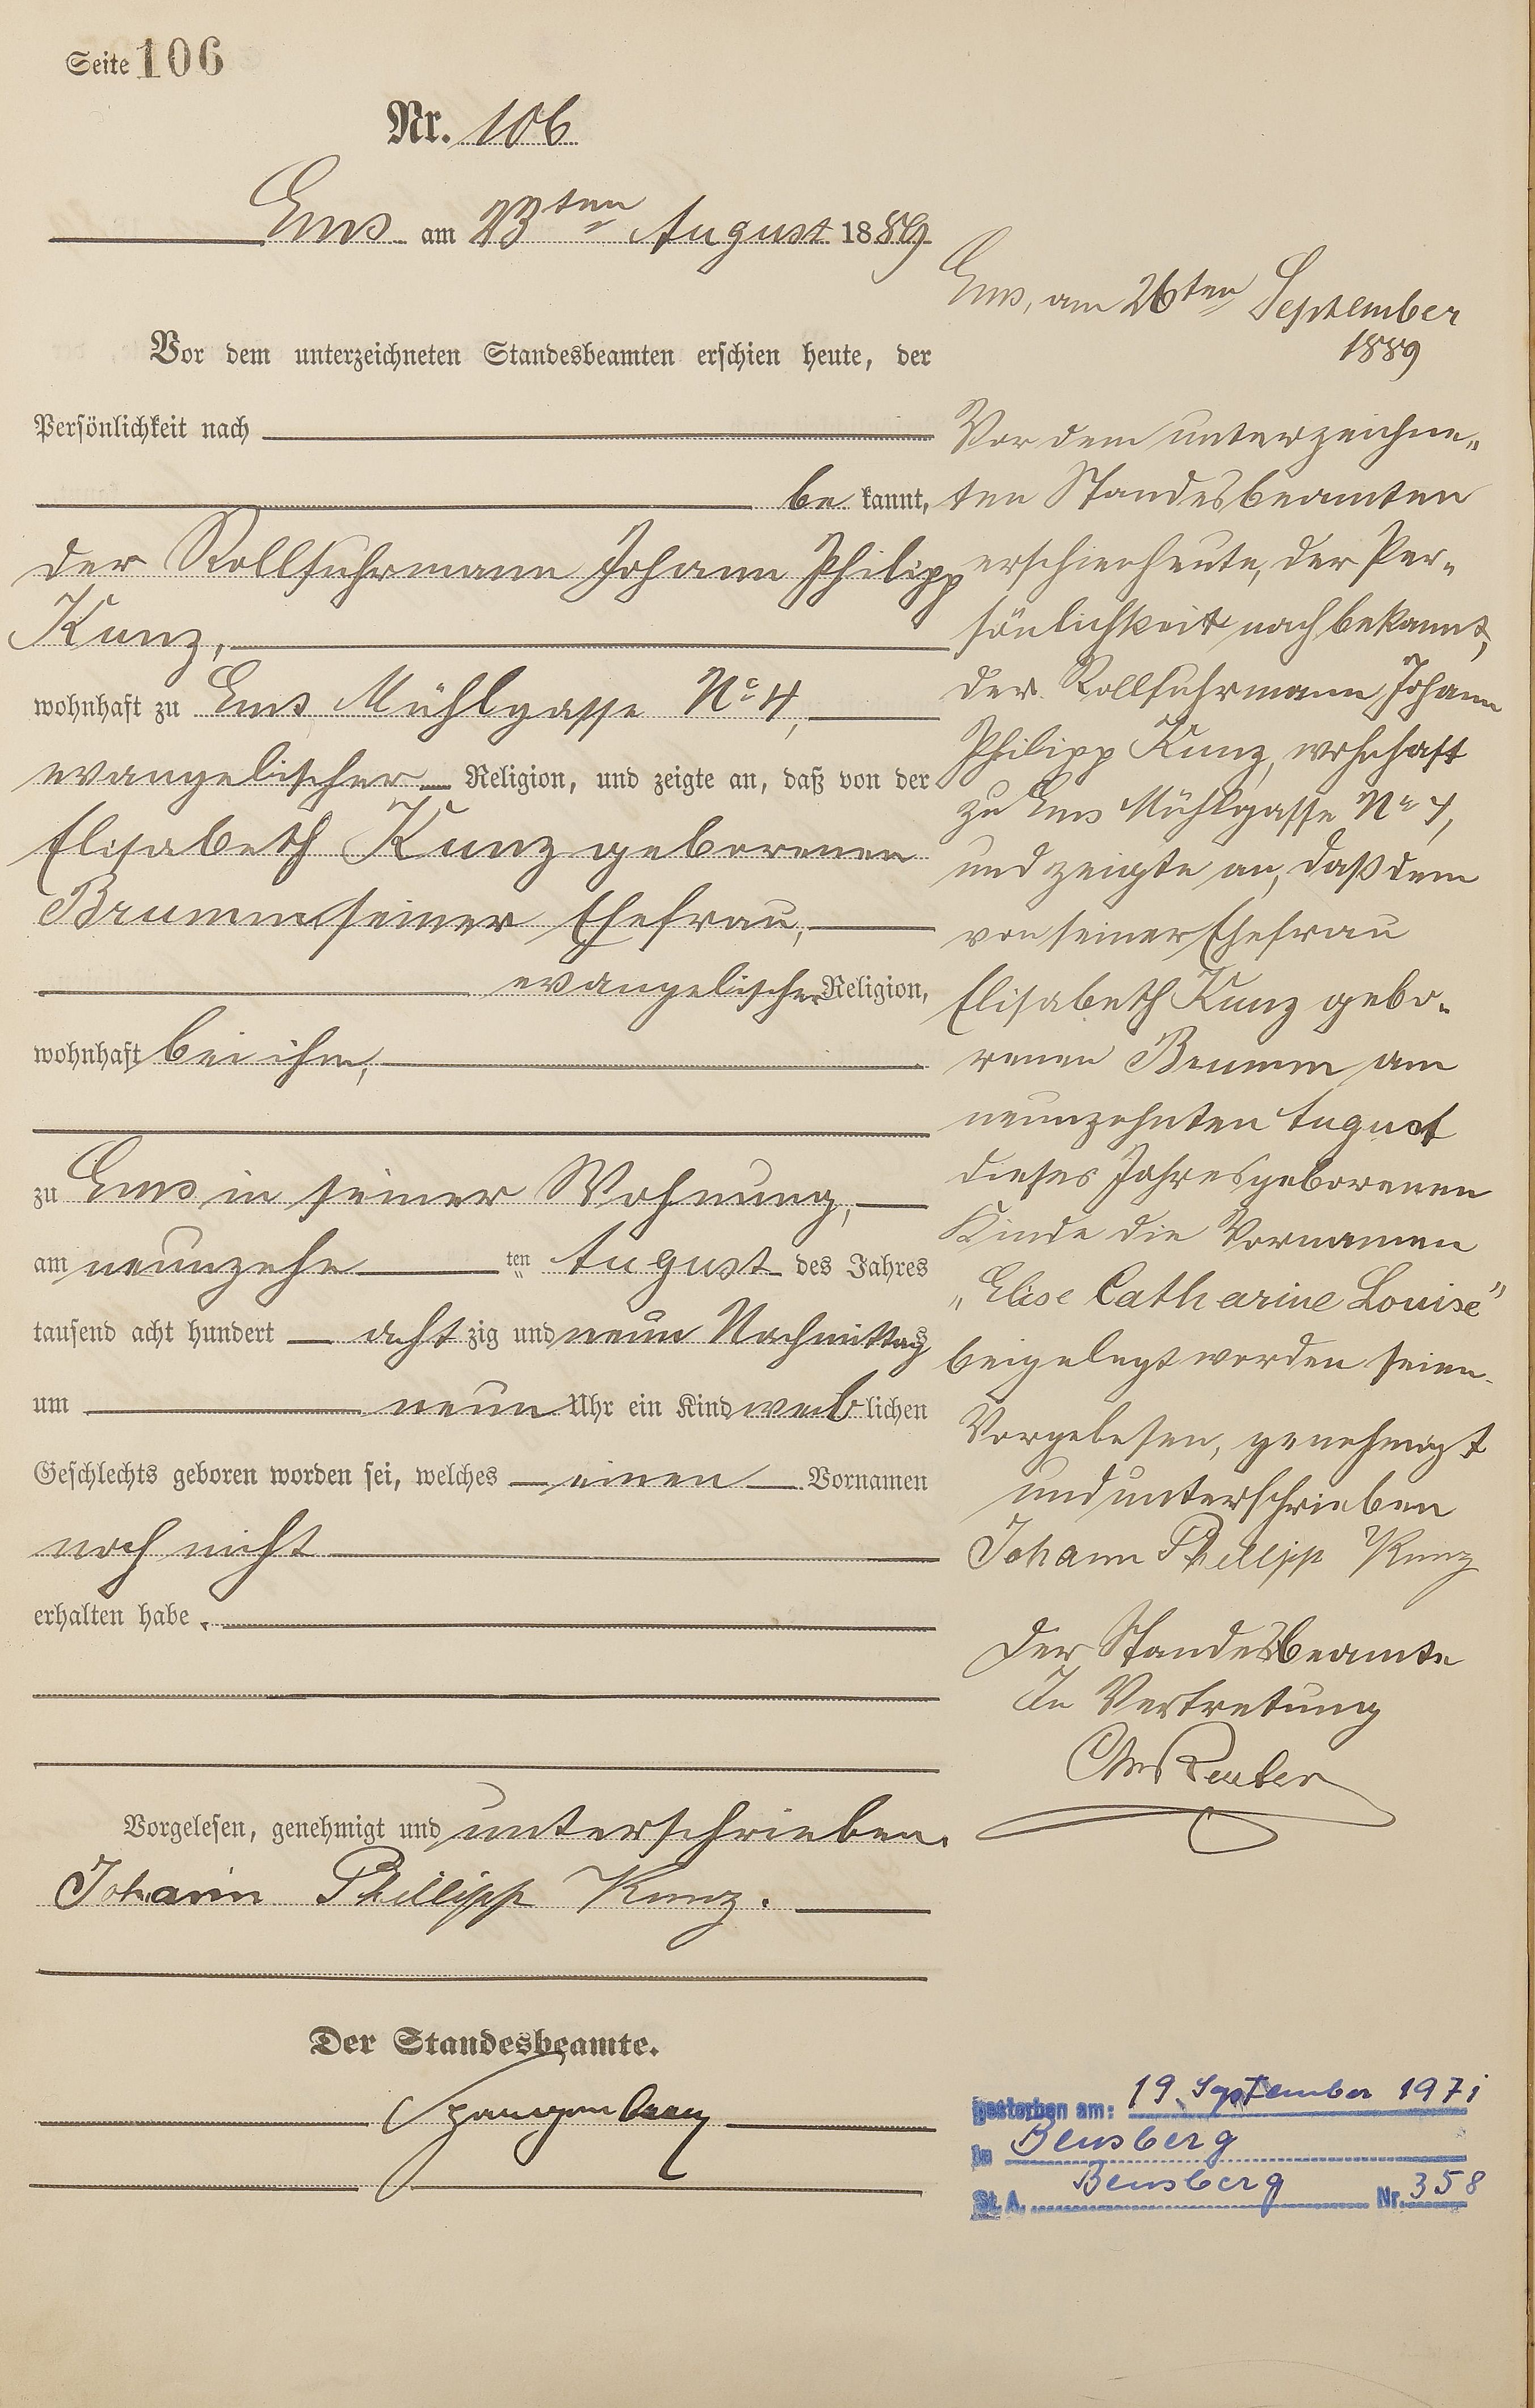 Seite 106
Nr. 106
Ems am 23ten August 1889
Vor dem unterzeichneten Standesbeamten erschien heute, der
Persönlichkeit nach
bekannt,
der Rollfuhrmann Johann Philipp
Kunz,
wohnhaft zu Ems Mühlgasse No 4,
evangelischer Religion, und zeigte an, daß von der
Elisabeth Kunz geborenen
Brumm seiner Ehefrau,
evangelischer Religion,
wohnhaft bei ihm,
zu Ems in seiner Wohnung,
am neunzehnten August des Jahres
tausend acht hundert achtzig und neun Nachmittags
um neun Uhr ein Kind weiblichen
Geschlechts geboren worden sei, welches einen Vornamen
noch nicht
erhalten habe.
Vorgelesen, genehmigt und unterschrieben.
Johann Phillipp Kunz.
Der Standesbeamte.
Ems, am 26ten September
1889
Vor dem unterzeichne-
ten Standesbeamten
erschien heute, der Per-
sönlichkeit nach bekannt,
der Rollfuhrmann Johann
Philipp Kunz, wohnhaft
zu Ems Mühlgasse No 4,
und zeigte an, daß dem
von seiner Ehefrau
Elisabeth Kunz gebo-
renen Brumm am
neunzehnten August
dieses Jahres geborenen
Kinde die Vornamen
„Elise Catharine Louise"
beigelegt worden seien.
Vorgelesen, genehmigt
und unterschrieben
Johann Phillipp Kunz
Der Standesbeamte
In Vertretung
Reuter
gestorben am: 19. September 1971
in Bensberg
St. A. Bensberg Nr. 358